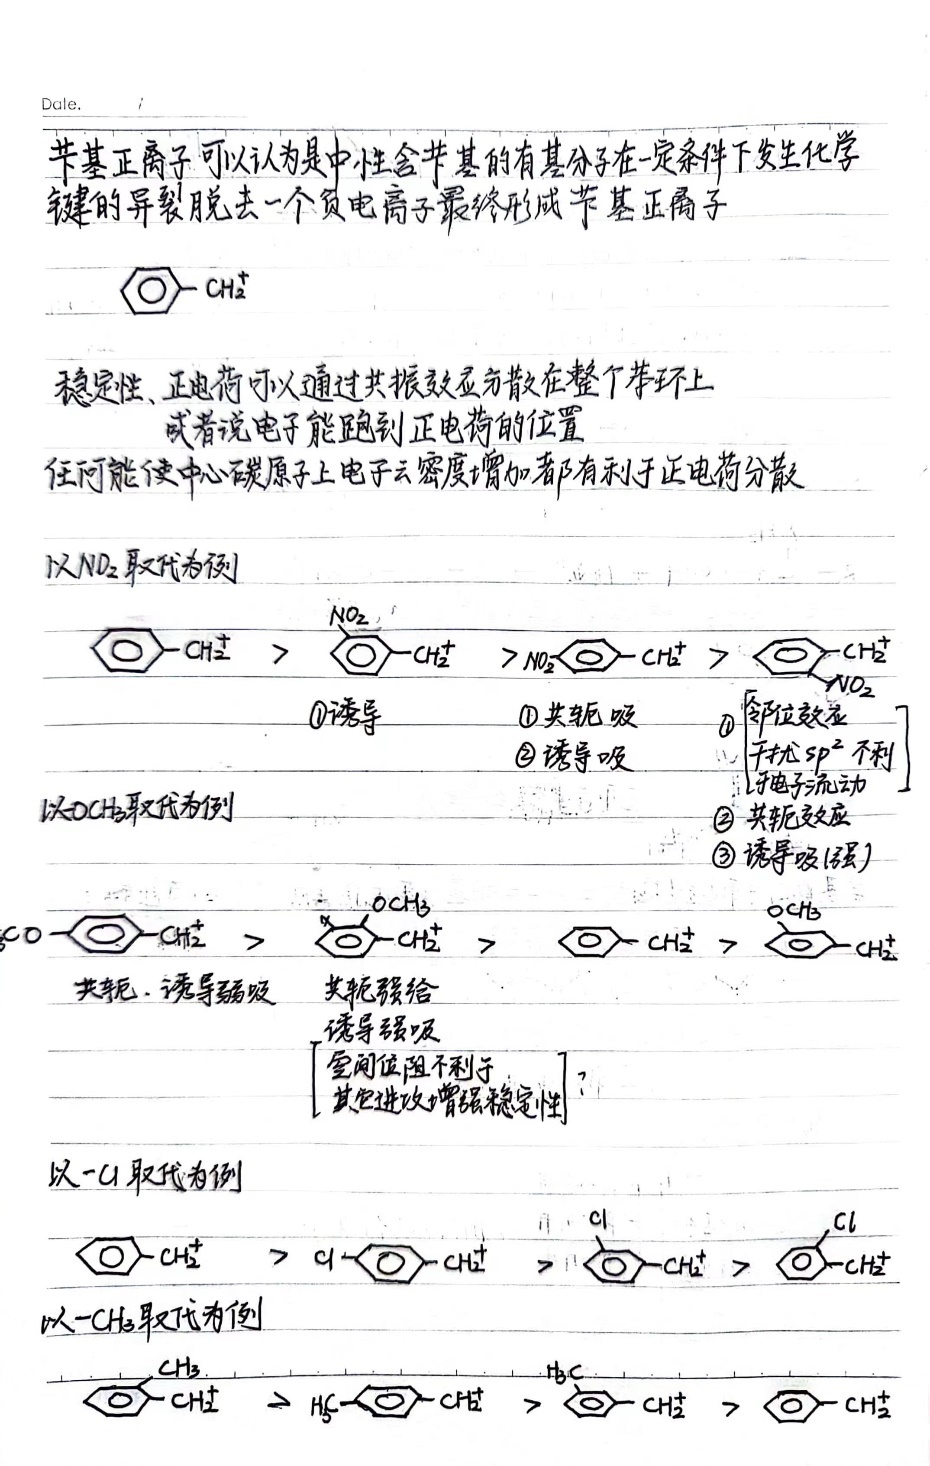 Date. /
苄基正离子可以认为是中性含苄基的有基分子在一定条件下发生化学
键的异裂脱去一个负电离子最终形成苄基正离子
CH₂⁺
稳定性、正电荷可以通过共振效应分散在整个苯环上
或者说电子能跑到正电荷的位置
任何能使中心碳原子上电子云密度增加都有利于正电荷分散
以NO₂取代为例
CH₂⁺ > NO₂ CH₂⁺ > NO₂ CH₂⁺ > CH₂⁺ NO₂
①诱导
①共轭吸
②诱导吸
①[邻位效应
干扰sp²不利
于电子流动]
②共轭效应
③诱导吸(强)
以-OCH₃取代为例
₃CO CH₂⁺ > OCH₃ CH₂⁺ > CH₂⁺ > OCH₃ CH₂⁺
共轭.诱导弱吸
共轭强给
诱导强吸
[空间位阻不利于
其它进攻增强稳定性]?
以-Cl取代为例
CH₂⁺ > Cl CH₂⁺ > Cl CH₂⁺ > Cl CH₂⁺
以-CH₃取代为例
CH₃ CH₂⁺ > H₃C CH₂⁺ > H₃C CH₂⁺ > CH₂⁺